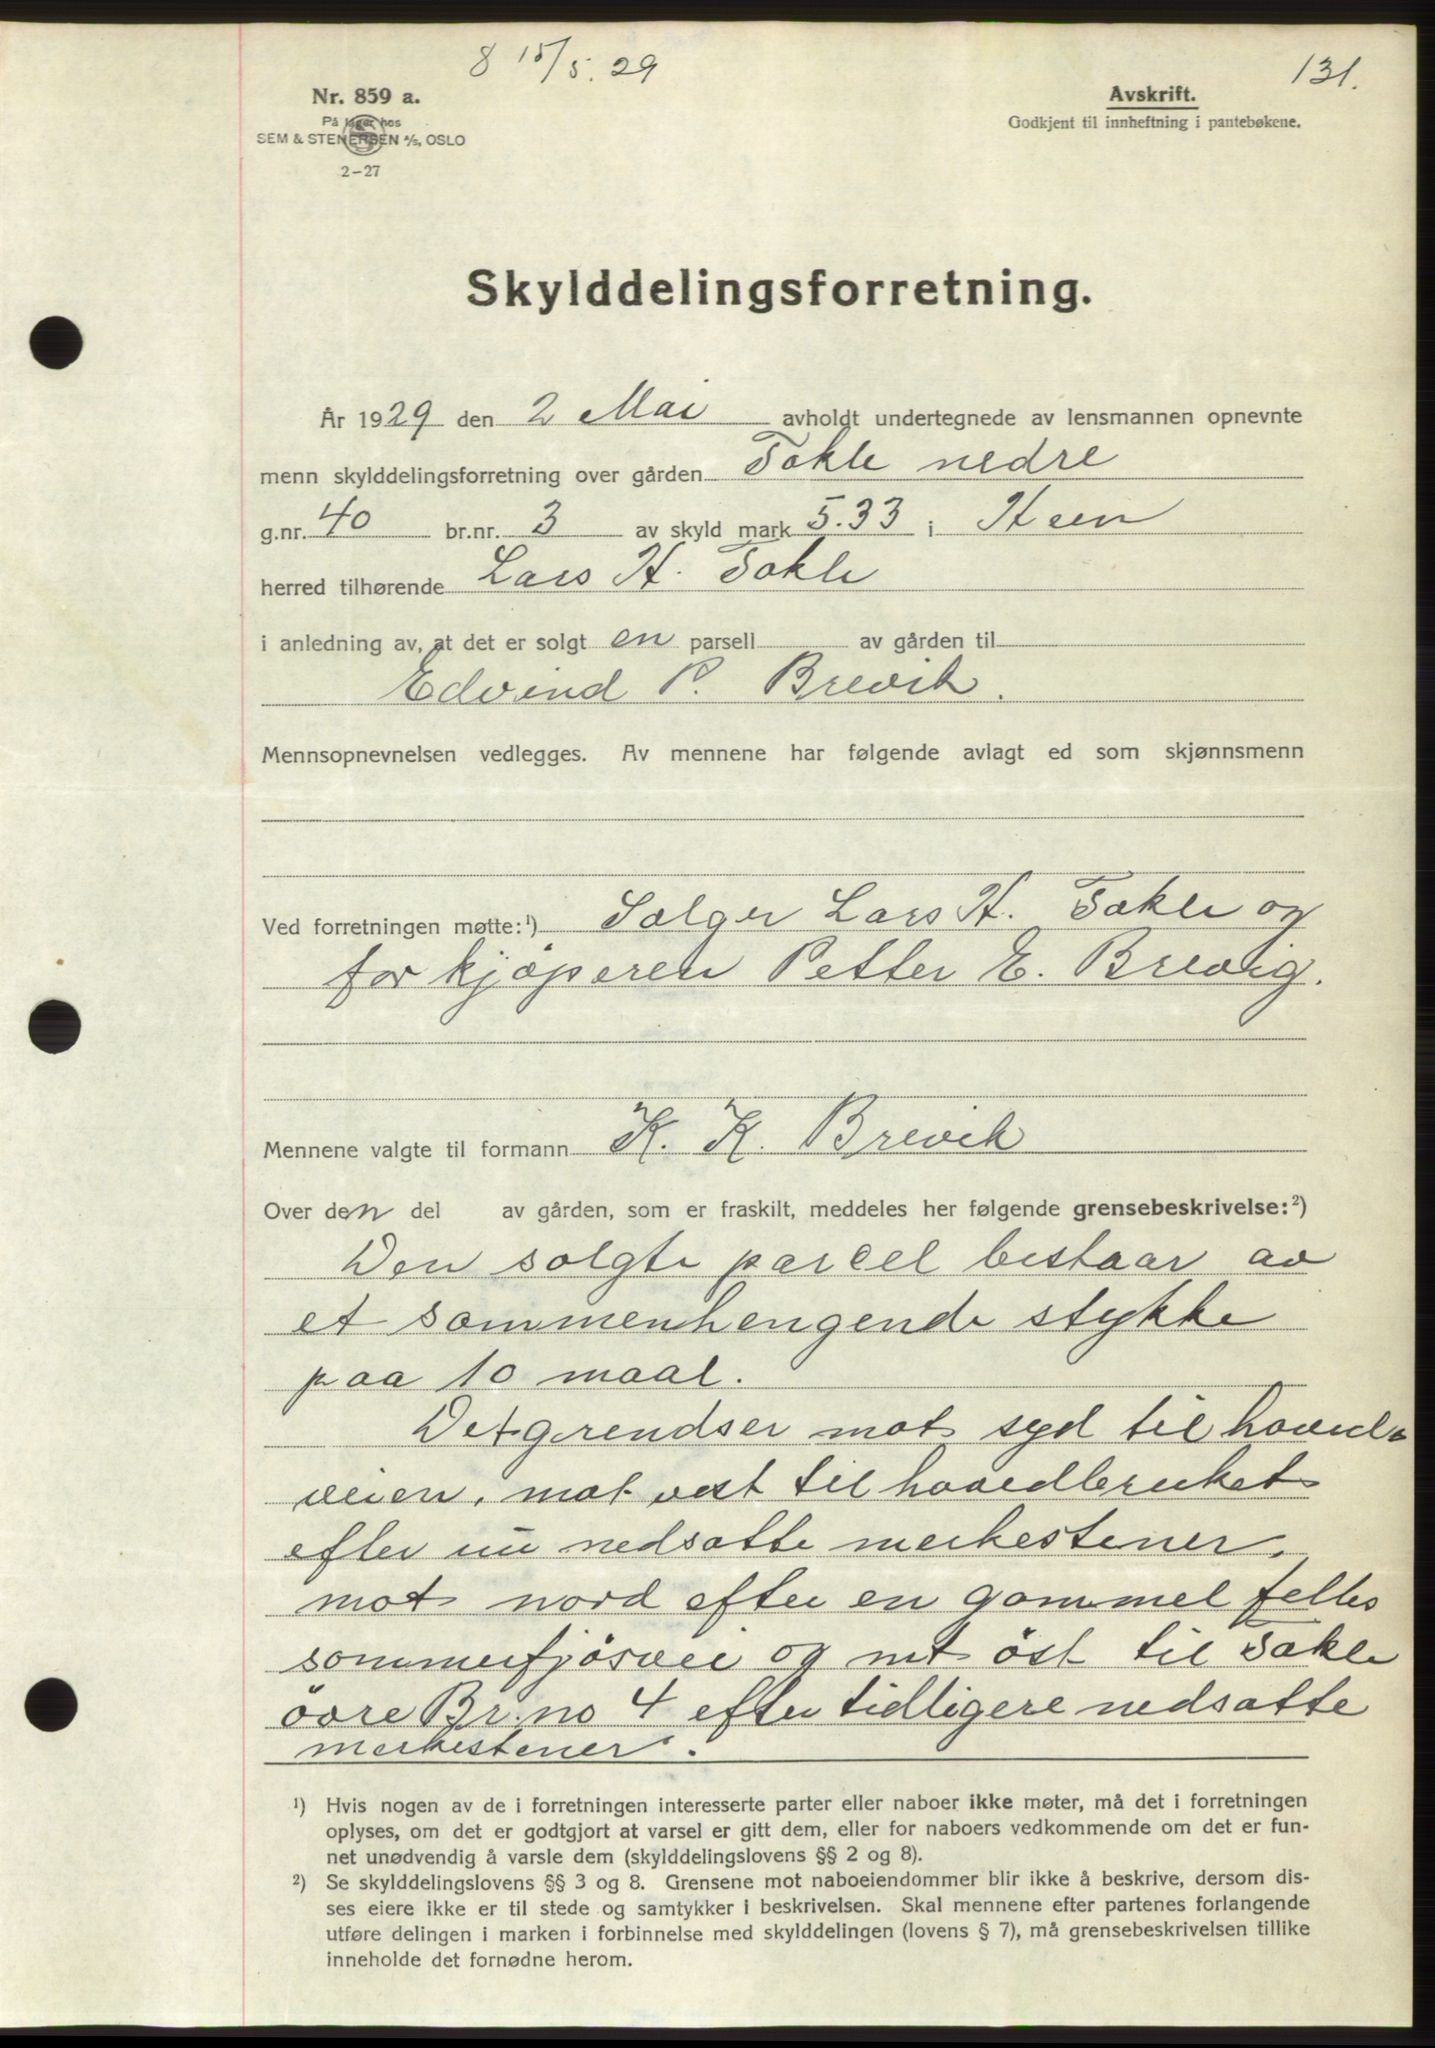 8 15/5. 29
131.
Nr. 859 a.
På lager hos
SEM & STENERSEN A/S, OSLO
2-27
Avskrift.
Godkjent til innheftning i pantebøkene.
Skylddelingsforretning.
År 1929 den 2 Mai avholdt undertegnede av lensmannen opnevnte
menn skylddelingsforretning over gården Takle nedre
g.nr. 40 br.nr. 3 av skyld mark 5.33 i Heen
herred tilhørende Lars H. Takle
i anledning av, at det er solgt en parsell av gården til
Edvind P. Brevik.
Mennsopnevnelsen vedlegges. Av mennene har følgende avlagt ed som skjønnsmenn
Ved forretningen møtte:¹) Sælger Lars H. Takle og
for kjøperen Petter E. Brevig.
Mennene valgte til formann K. K. Brevik
Over den del av gården, som er fraskilt, meddeles her følgende grensebeskrivelse:²)
Den solgte parcel bestaar av
et sammenhengende stykke
paa 10 maal.
Det grendser mot syd til hoved-
veien, mot vest til hovedbruket
efter nu nedsatte merkestener,
mot nord efter en gammel felles
sommerfjösvei og mt öst til Takle
övre Br. no 4 efter tidligere nedsatte
merkestener.
¹) Hvis nogen av de i forretningen interesserte parter eller naboer ikke møter, må det i forretningen
oplyses, om det er godtgjort at varsel er gitt dem, eller for naboers vedkommende om det er fun-
net unødvendig å varsle dem (skylddelingslovens §§ 2 og 8).
²) Se skylddelingslovens §§ 3 og 8. Grensene mot naboeiendommer blir ikke å beskrive, dersom dis-
ses eiere ikke er til stede og samtykker i beskrivelsen. Skal mennene efter partenes forlangende
utføre delingen i marken i forbinnelse med skylddelingen (lovens § 7), må grensebeskrivelsen tillike
inneholde det fornødne herom.